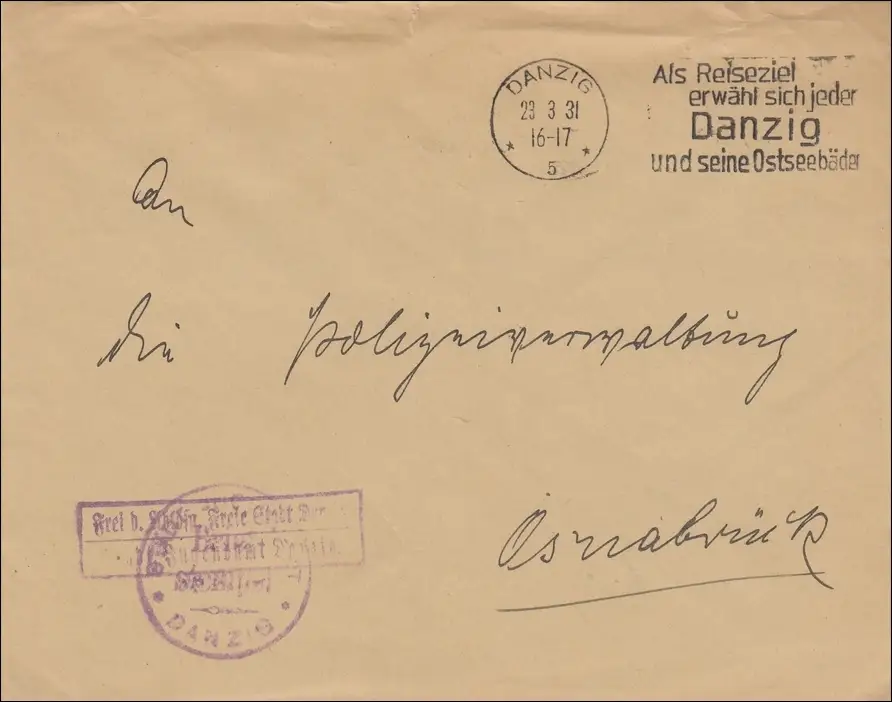 DANZIG
23 3 31
16-17
* *
5
Als Reiseziel
erwähl sich jeder
Danzig
und seine Ostseebäder
An
die Polizeiverwaltung
Osnabrück
Frei d. Freie Statt
* DANZIG *